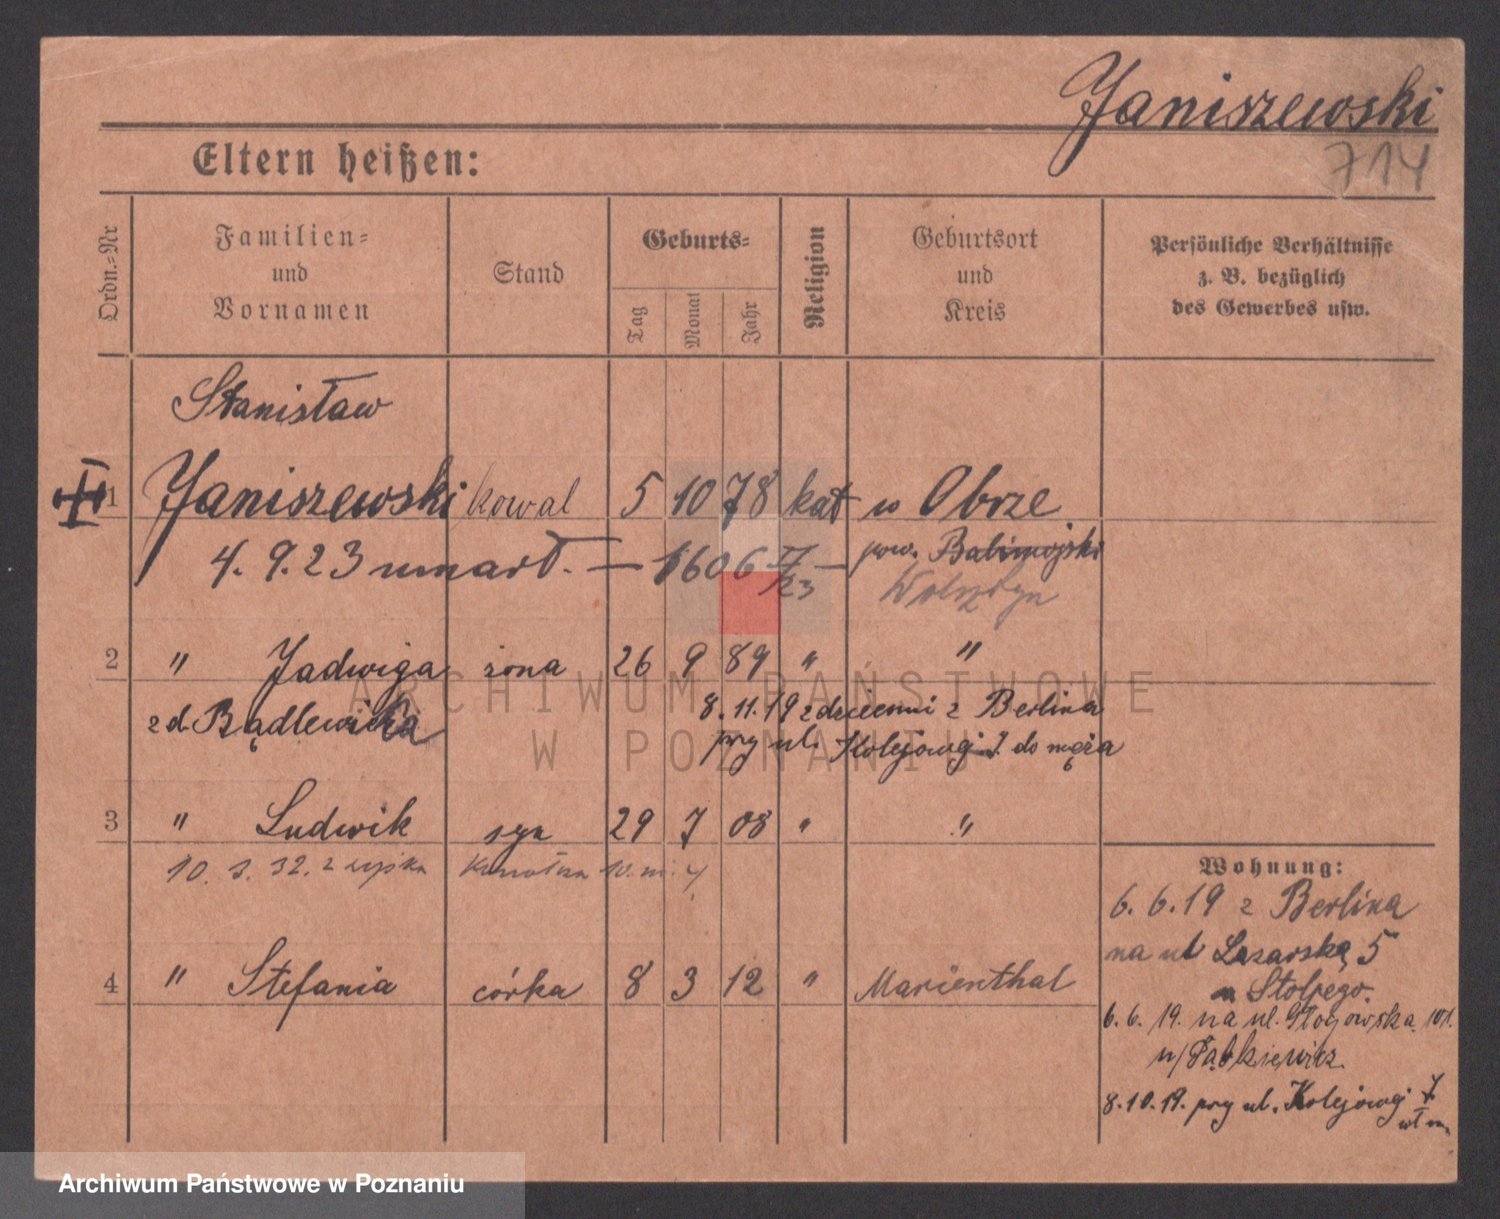 Janiszewski
714
Eltern heißen:
Ordn.-Nr
Familien-
und
Vornamen
Stand
Geburts-
Tag
Monat
Jahr
Religion
Geburtsort
und
Kreis
Persönliche Verhältnisse
z. B. bezüglich
des Gewerbes usw.
Stanisław
1 Janiszewski kowal 5 10 78 kat w Obrze
4. 9. 23 umarł. — 1606 II/23 — pow. Babimojski
Wolsztyn
2 " Jadwiga żona 26 9 89 " "
z d. Bądlewicka 8. 11. 19 z dziećmi z Berlina
przy ul. Kolejowej 7. do męża
3 " Ludwik syn 29 7 08 " "
10. 3. 32. z wojska
4 " Stefania córka 8 3 12 " Marienthal
Wohnung:
6. 6. 19 z Berlina
na ul Lazarską 5
Stolpego.
6. 6. 19. na ul. Głogowska 101.
8. 10. 19. przy ul. Kolejowej 7
ARCHIWUM PAŃSTWOWE
W POZNANIU
Archiwum Państwowe w Poznaniu